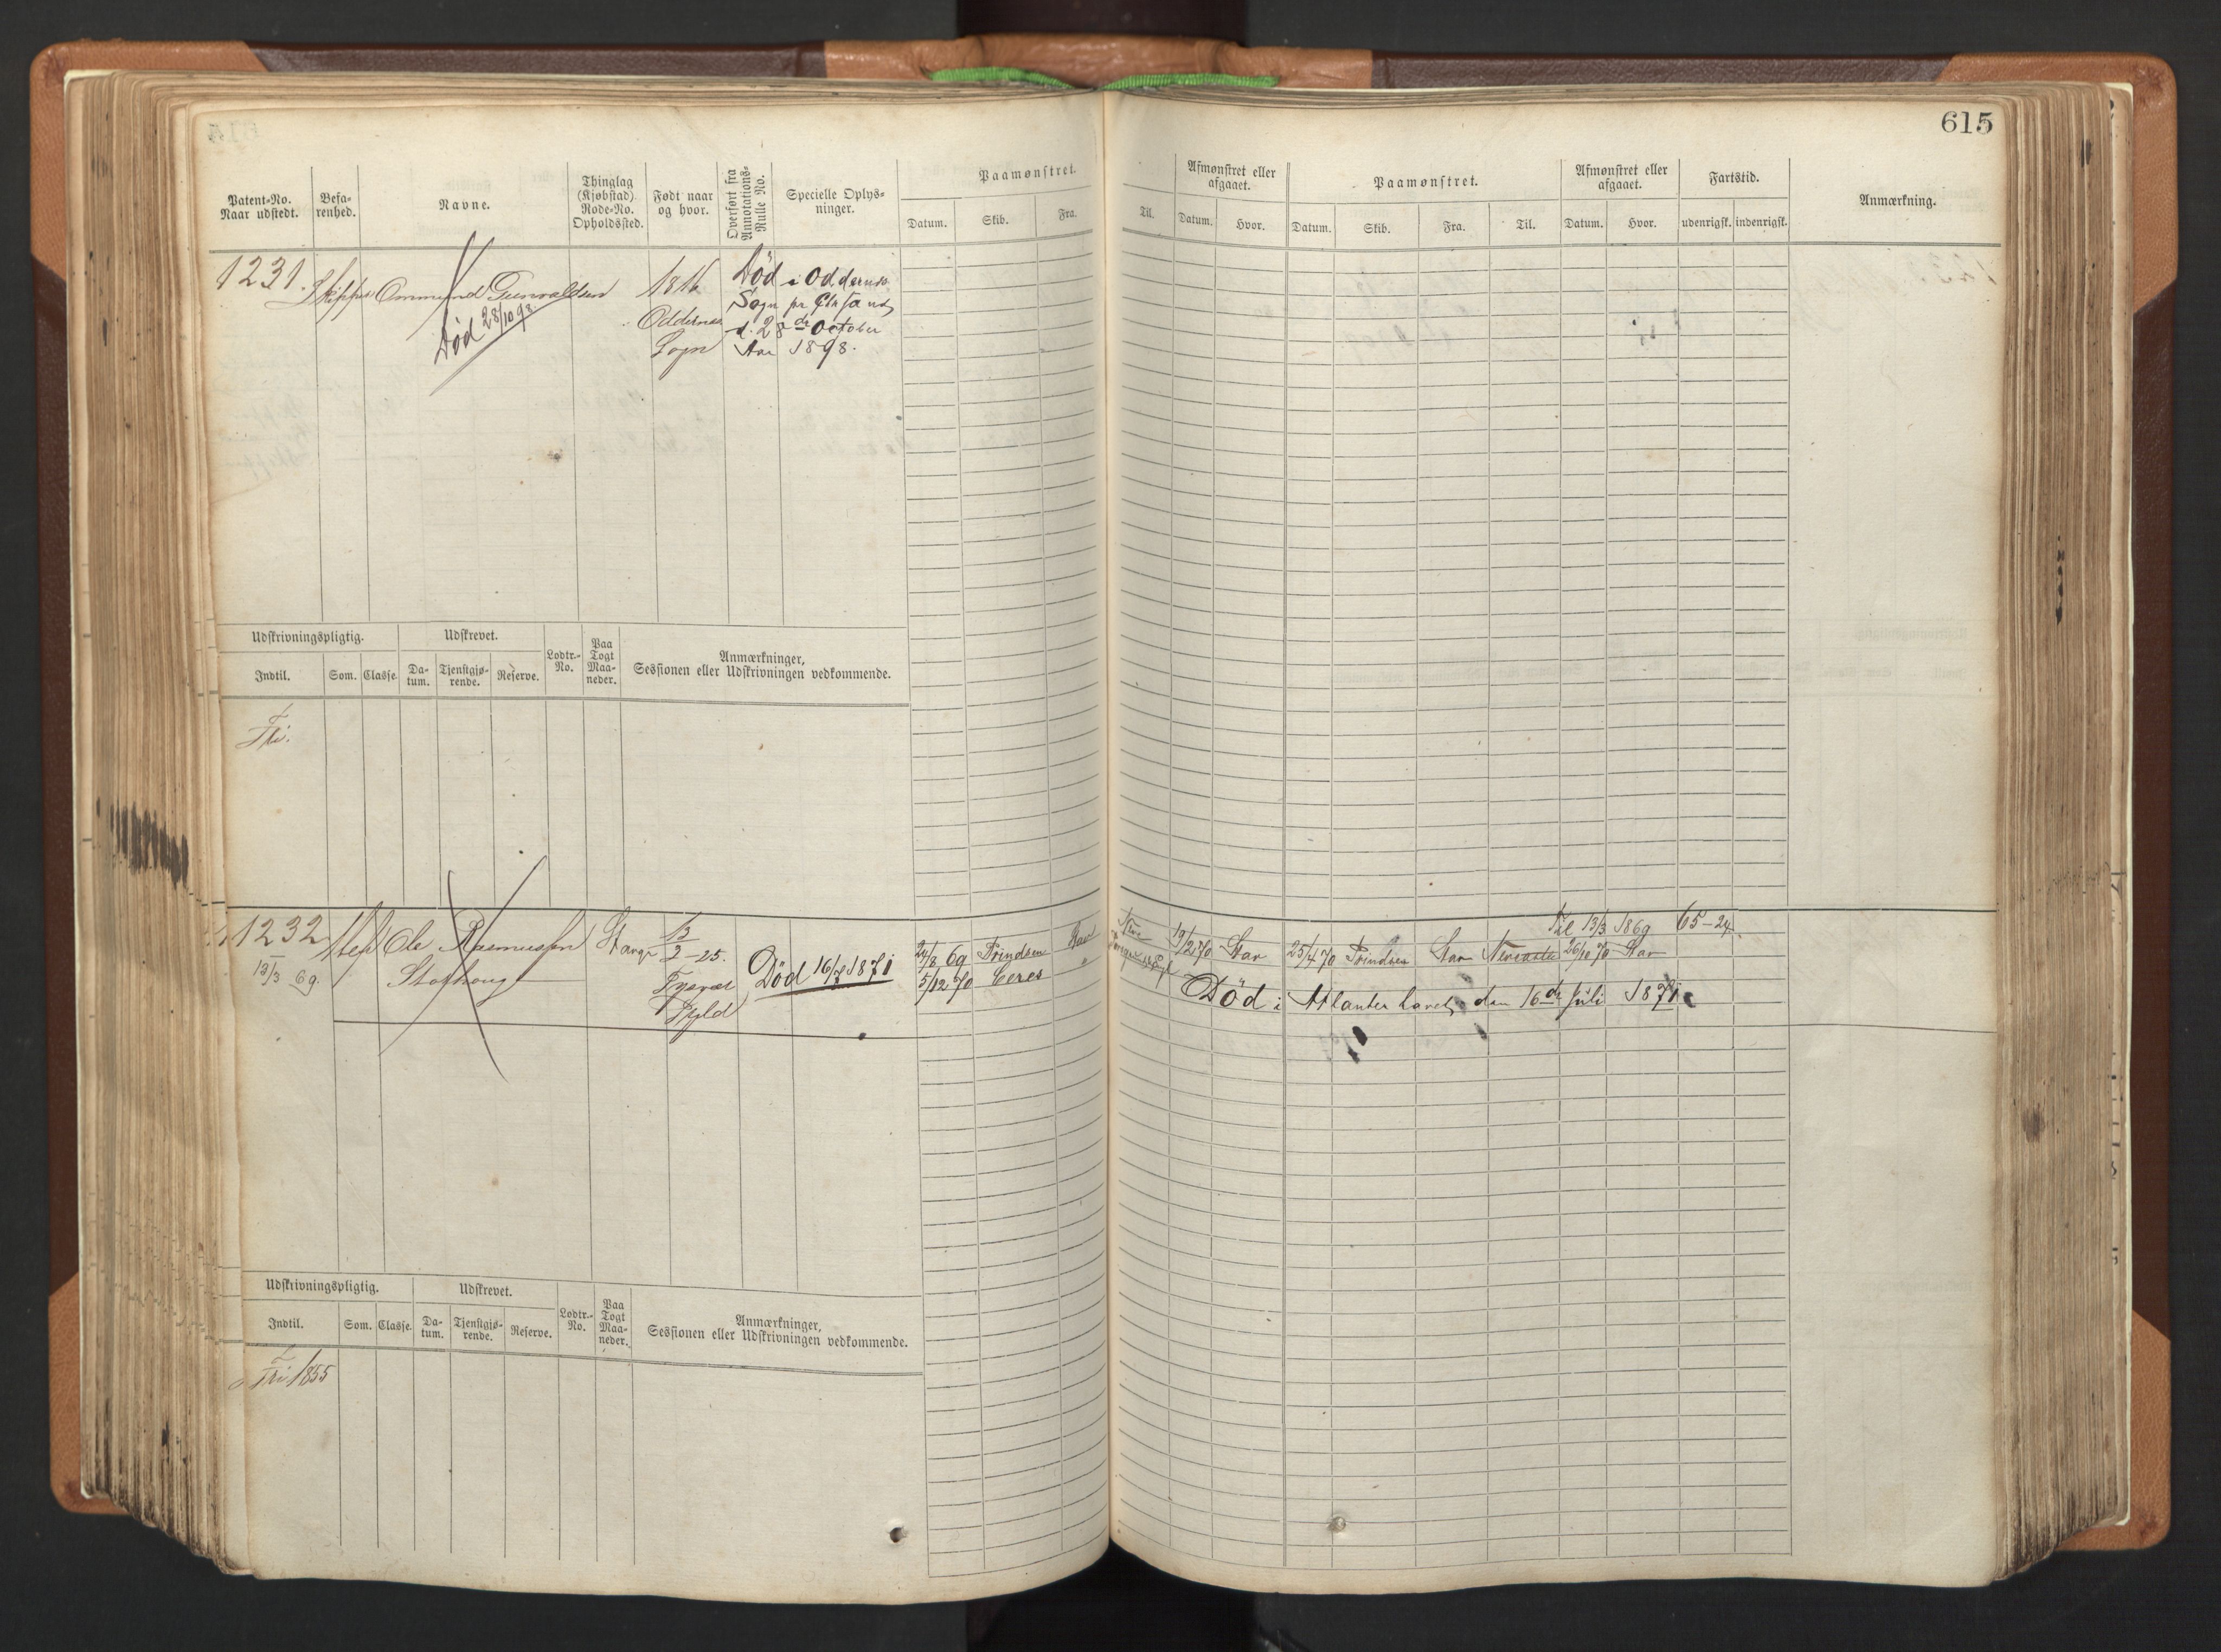 615
Patent-No. Naar udstedt.
Befarenhed.
Navne.
Thinglag (Kjøbstad) Rode-No. Opholdssted.
Født naar og hvor.
Overført fra Annotations-Rulle No.
Specielle Oplysninger.
Paamønstret.
Datum. Skib. Fra. Til.
Afmønstret eller afgaaet.
Datum. Hvor.
Paamønstret.
Datum. Skib. Fra. Til.
Afmønstret eller afgaaet.
Datum. Hvor.
Fartstid.
udenrigsk. indenrigsk.
Anmærkning.
1231. Skipper Ommund Gunvaldsen
Død 28/10 98
1816
Oddernes
Sogn
Død i Oddernes
Sogn pr Chrsand
d. 28de October
Aar 1898.
Udskrivningspligtig. Udskrevet. Lodtr.-No. Paa Togt Maaneder. Anmærkninger, Sessionen eller Udskrivningen vedkommende.
Indtil. Som. Classe. Datum. Tjenstgjørende. Reserve.
Fri.
1232
13/3 69.
Ole Rasmussen
Stavgr
25.
Tysvær
Død 16/7 1871
24/8 69 Prindsen Stav
5/12 70 Ceres
19/2 70 Stav 25/4 70 Prindsen Stav Newcastle 26/10 70 Stav
Til 13/3 1869 65-24
Død i Atlanterhavet, den 16de Juli 1871
Udskrivningspligtig. Udskrevet. Lodtr.-No. Paa Togt Maaneder. Anmærkninger, Sessionen eller Udskrivningen vedkommende.
Indtil. Som. Classe. Datum. Tjenstgjørende. Reserve.
Fri 1855